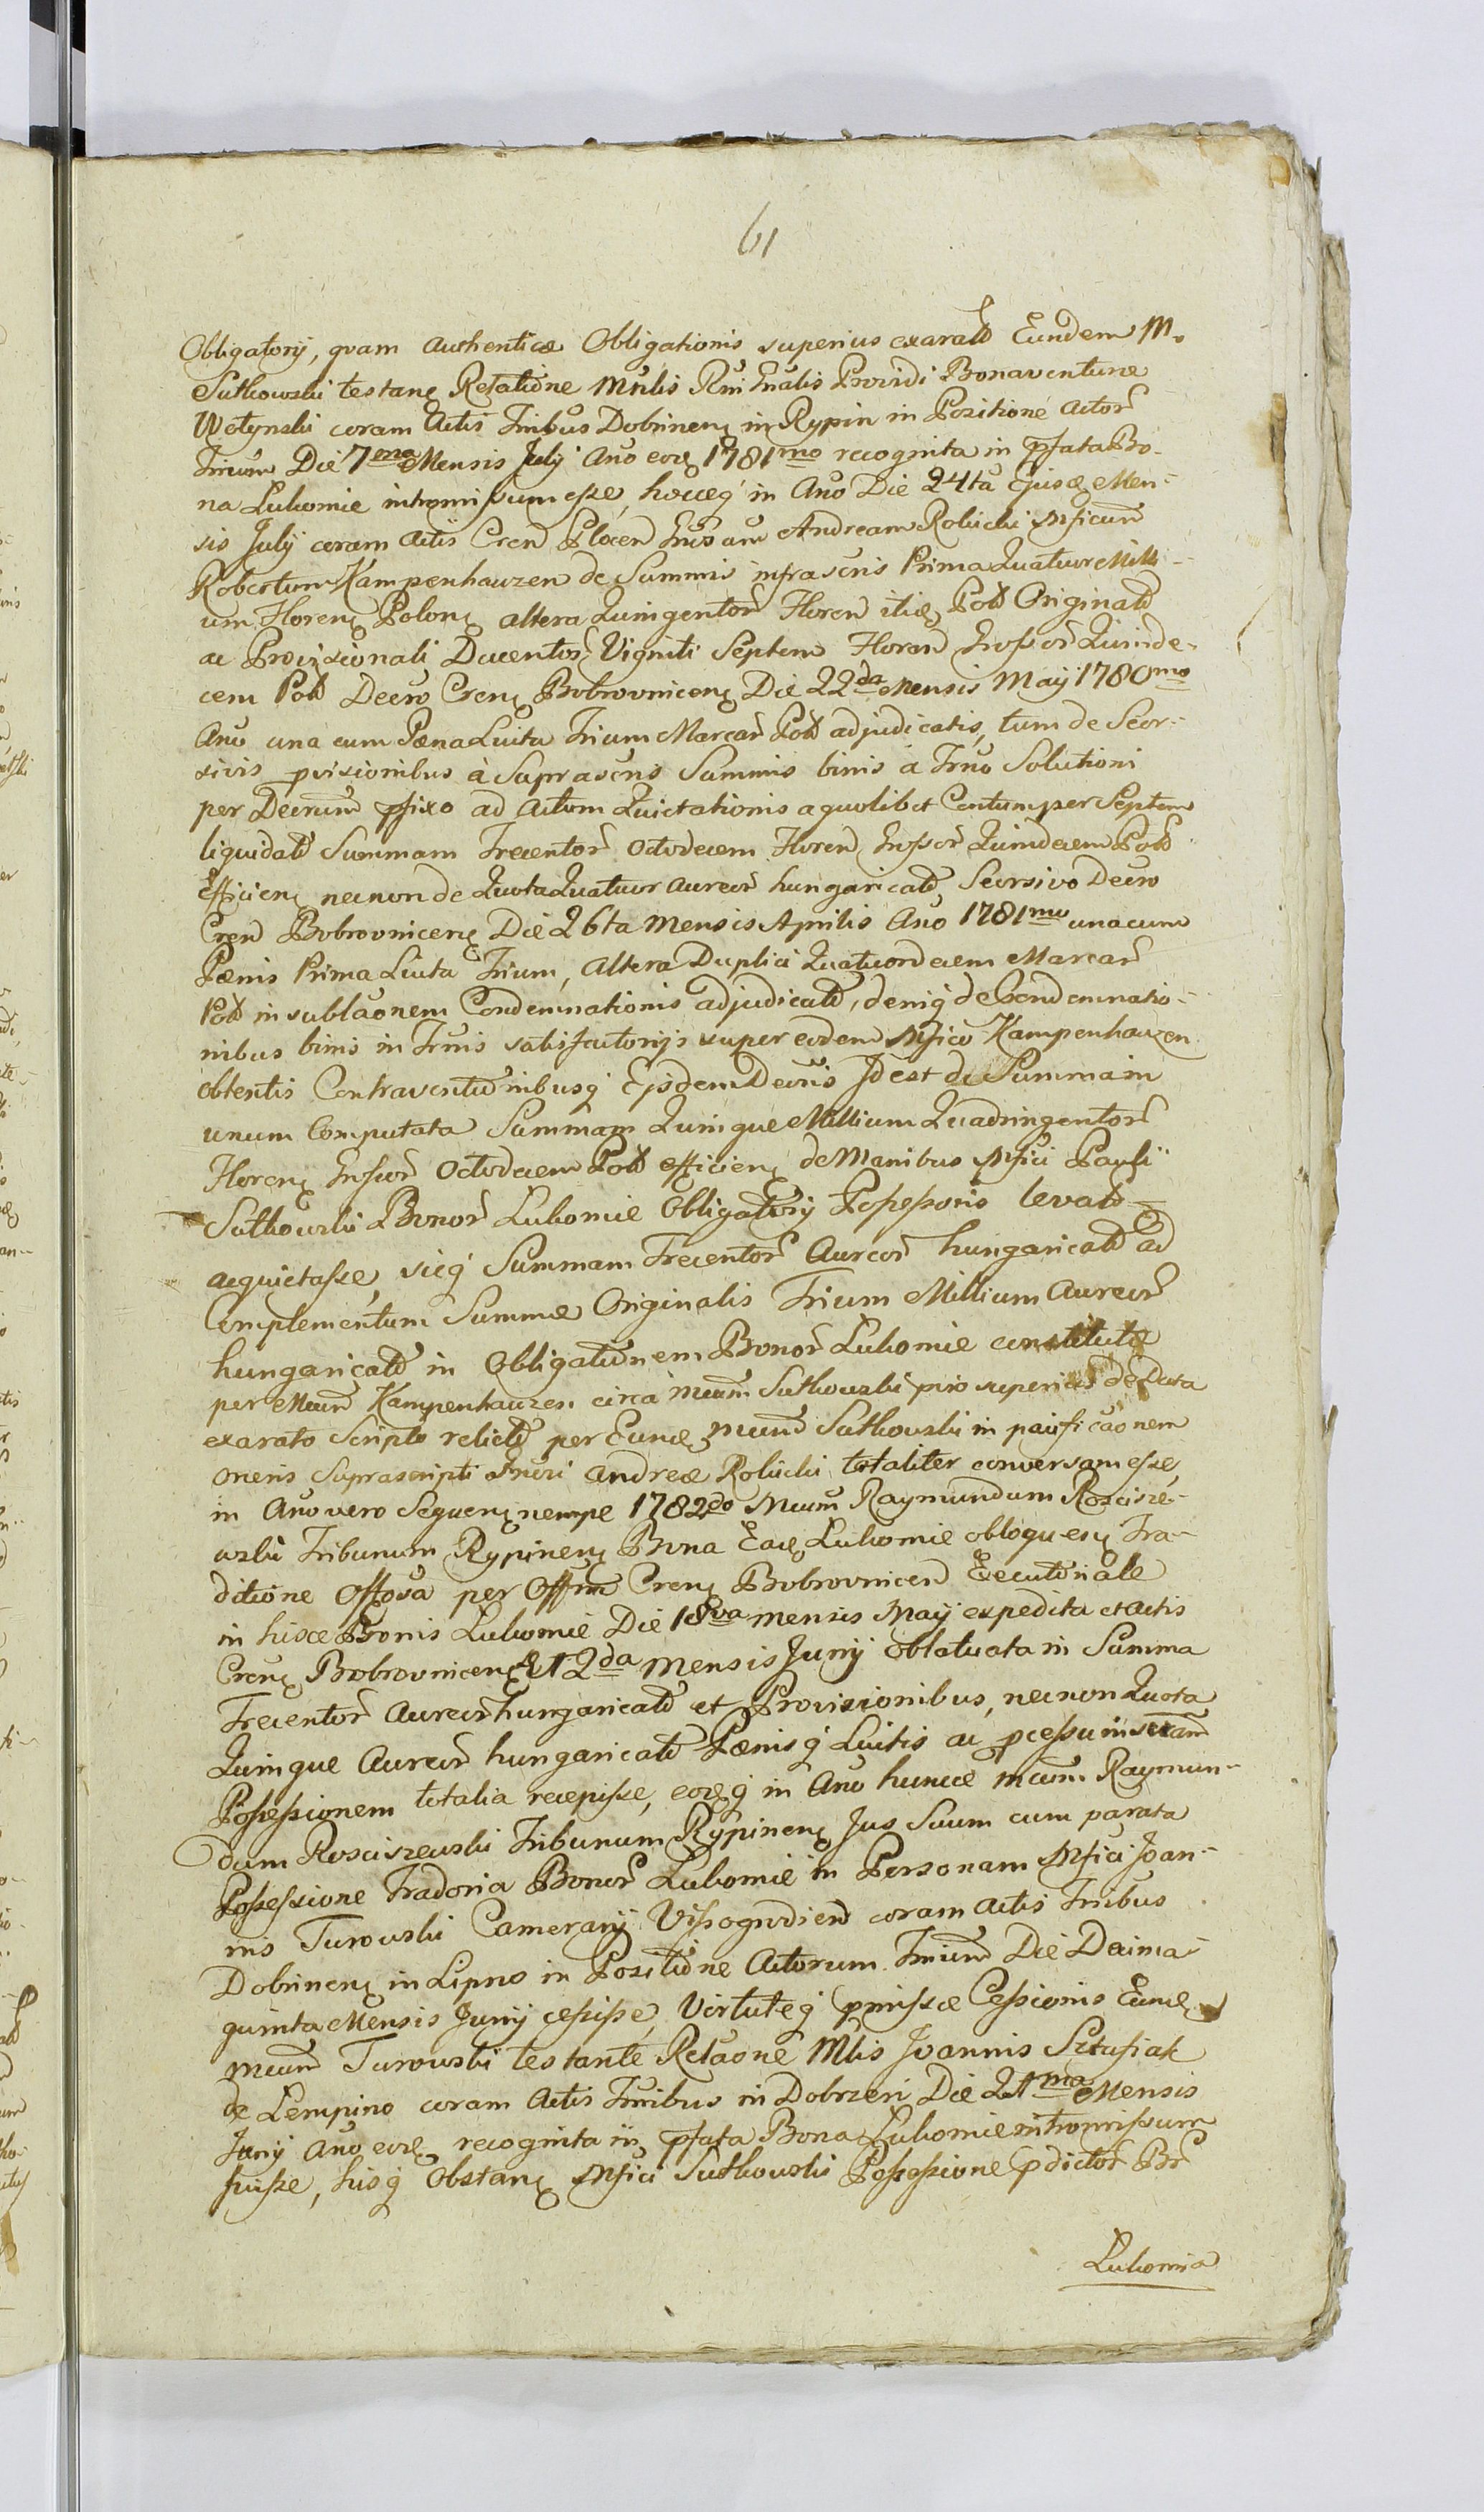 61
Obligatorij, quam authenticæ Obligationis superius exarato Eundem M.
Sutkowski testanę Relatione Mnlis Rni Gnalis Providi Bonaventuræ
Wetynski coram Actis Trribus Dobrinenę in Rypin in Positione Actor
Trium Die 7ma Mensis Julij Ano eoę 1781mo recognita in pfata Bo-
na Lukomie intromissum esse, hoceq in Ano Die 24ta ejusę Men-
sis Julij coram Actis Cren Plocen Gnosum Andream Robicki Mficum
Robertum Kampenhauzen de Summis infrascris Prima Quatuor Milli-
um Florenę Polonę altera Quingentor Floren itię Pol Originali
ac Provisionali Ducentor Viginti Septem Floren Grossor Quinde-
cem Pol Decro Crenę Bobrovnicenę Die 22da Mensis Maij 1780mo
Ano una cum Pæna Luita Trium Marcar Pol adjudicatis, tum de Seor-
sivis pvisionibus à Suprascris Summis binis à Trno Solutioni
per Decrum pfixo ad Actum Quietationis a quolibet Centum per Septem
liquidato Summam Trecentor Octodecem Floren Grossor Quindecem Pol
Efficienę necnon de Quota Quatuor Aureor hungaricato Seorsivo Decro
Cren Bobrovnicenę Die 26ta Mensis Aprilis Ano 1781mo una cum
Pænis Prima Luita Trium, Altera Duplici Quatuordecem Marcar
Pol in sublaonem Condemnationis adjudicato, deniq de Condemnatio-
nibus binis in Trnis satisfactorijs super eodem Mfico Kampenhauzen
obtentis Contraventionibusq Ejsdem Decris Jd est de Summa in
unum Computata Summam Quinque Millium Quadringentor
Florenę Grossor Octodecem Pol efficienę de Manibus Mfici Pauli
Sutkowski Bonor Lukomie Obligatorij Possessoris levato
acquietasse, sicq Summam Trecentor Aureor hungaricato ad
Complementum Summæ Originalis Trium Millium Aureor
hungaricato in Obligationem Bonor Lukomie constitutæ
per Mcum Kampenhauzen circa Mcum Sutkowski pro superius de Data
exarato Scripto relicto per Eunę Mcum Sutkowski in pacificaonem
oneris Suprascripti Gnosi Andreæ Robicki totaliter conversam esse,
in Ano vero Sequenę nempe 1782do Mcum Raymundum Rosciszé-
wski Tribunum Rypinenę Bona Eaę Lukomie obloquenę Tra-
ditione Offosa per Offum Crenę Bobrovnicen Executoriale
in hisce Bonis Lukomie Die 18va Mensis Maij expedita et Actis
Crenę Bobrovnicenę 12da Mensis Junij oblatuata in Summa
Trecentor Aureor hungaricato et Provisionibus, necnon Quota
Quinque Aureor hungaricato Pænisq Luitis ac pcessu in
Possessionem totalia recepisse, eoęq in Ano huncce Mcum Raymun-
dum Rosciszewski Tribunum Rypinenę Jus Suum cum parata
Possessione Tradoria Bonor Lukomie in Personam Mfici Joan-
nis Turowski Camerarij Vissogrodien coram Actis Trribus
Dobrinenę in Lipno in Positione Actorum Trium Die Decima
quinta Mensis Junij cessisse, Virtuteq pmissæ Cessionis Eunę
Mcum Turowski testante Relaone Mlis Joannis Sztusiak
de Lempino coram Actis Trribus in Dobrzen Die 21ma Mensis
Junij Ano eoę recognita in pfata Bona Lukomie intromissum
fuisse, hisq Obstanę Mfici Sutkowski Possessione pdictor Br
Lukomia